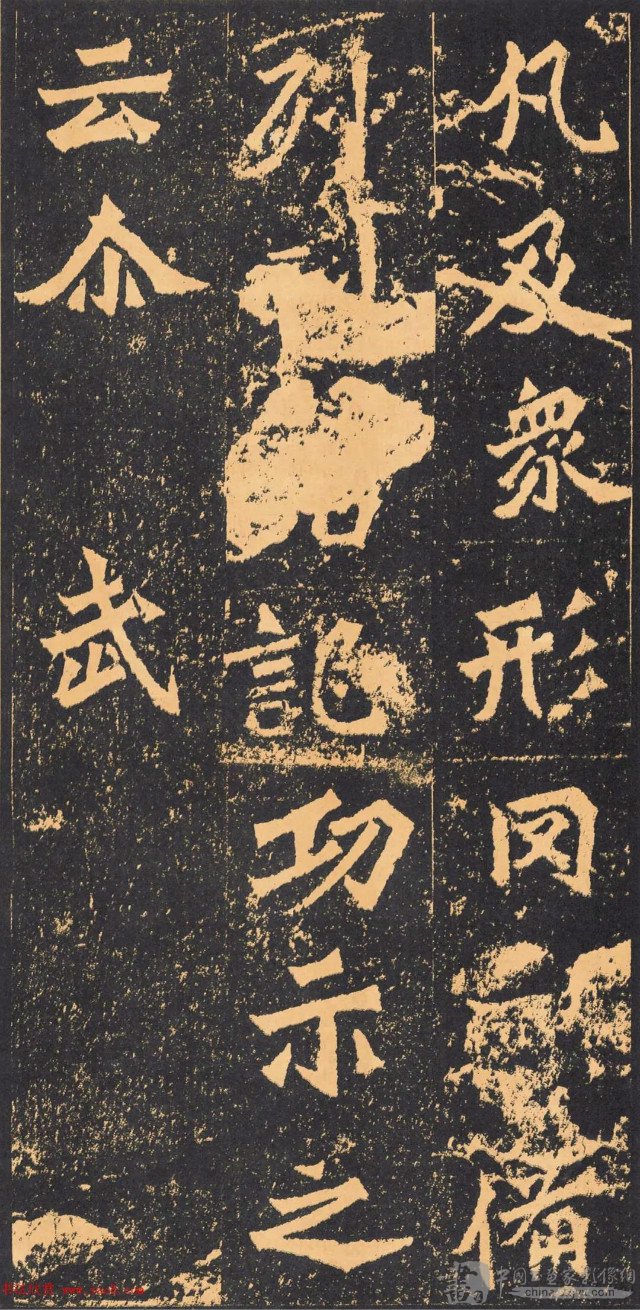 凡及衆形罔備
列記功示之
云尒 武